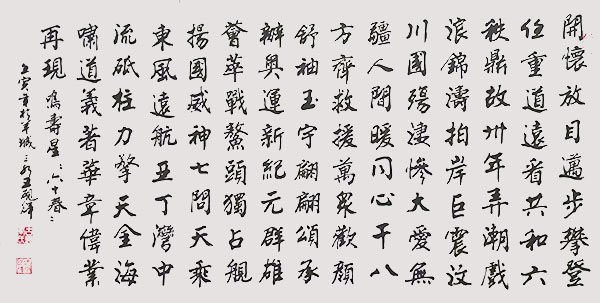 開懷放目邁步攀登
任重道遠看共和六
秩鼎故卅年弄潮戲
浪錦濤拍岸巨震汶
川國殤淒慘大愛無
疆人間暖同心千八
方齊救援萬衆歡顏
舒袖玉宇翩翩頌承
辦奧運新紀元群雄
薈萃戰鰲頭獨占
揚國威神七問天乘
東風遠航亞丁灣中
流砥柱力擎天金海
嘯道義者華章偉業
再現
壽星 六十春